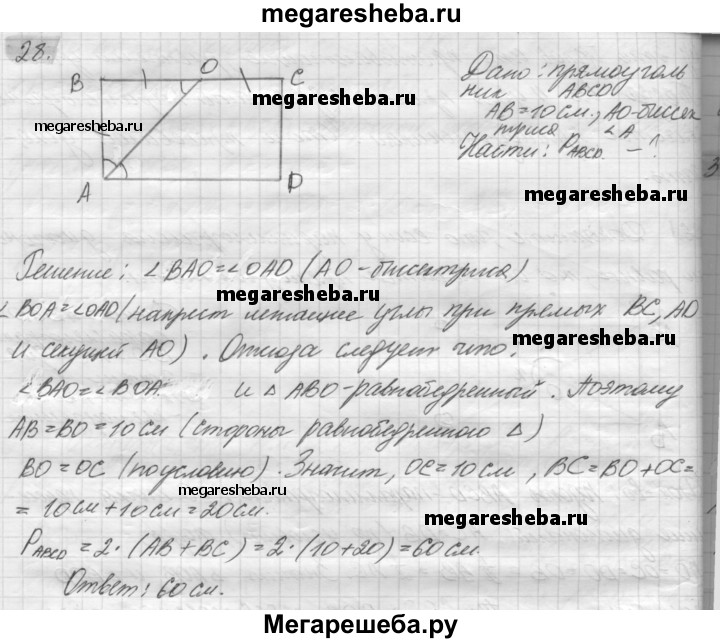 megaresheba.ru
28.
B O C
megaresheba.ru
megaresheba.ru
A D
Дано: прямоуголь
ник ABCD
AB=10 см., AO-биссек
триса ∠A
Найти: P ABCD - ?
megaresheba.ru
Решение: ∠BAO=∠OAD (AO-биссектриса)
megaresheba.ru
∠BOA=∠OAD (накрест лежащие углы при прямых BC, AD
и секущей AO). Отсюда следует что:
megaresheba.ru
∠BAO=∠BOA. и △ ABO-равнобедренный. Поэтому
AB=BO=10 см (стороны равнобедренного △)
BO=OC (по условию). Значит, OC=10 см, BC=BO+OC=
megaresheba.ru
= 10 см+10 см=20 см.
megaresheba.ru
P ABCD = 2·(AB+BC)=2·(10+20)=60 см.
Ответ: 60 см.
Мегарешеба.ру